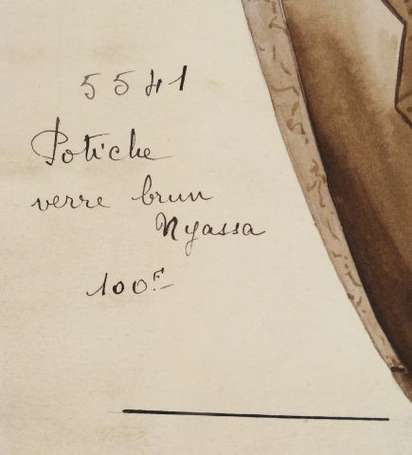 5541
Potiche
verre brun
Nyassa
100F